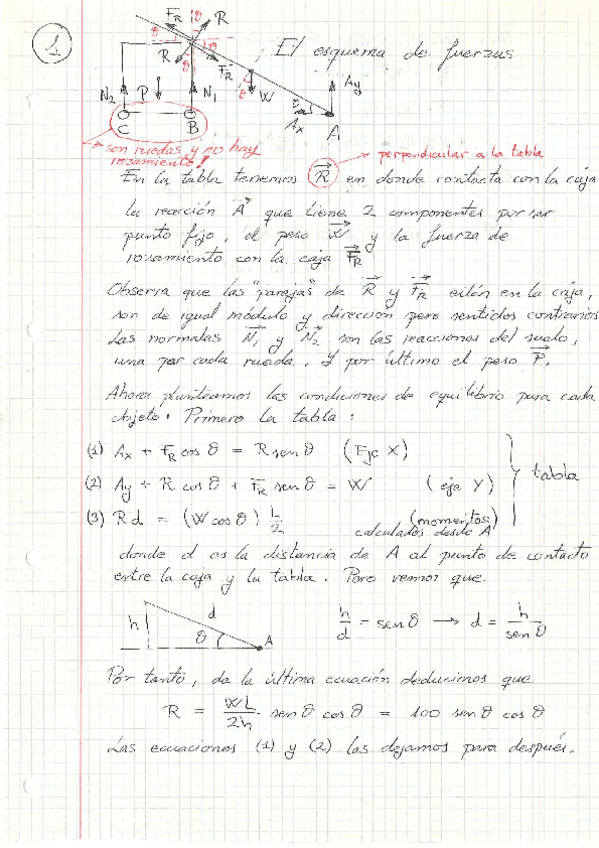 1
F_R R
θ θ
θ θ
R θ F_R
N_2 P N_1 θ W θ A_x A_y
C B A
El esquema de fuerzas
→ son ruedas y no hay
rozamiento!
→ perpendicular a la tabla
En la tabla tenemos R⃗ en donde contacta con la caja
la reacción A⃗ que tiene 2 componentes por ser
punto fijo, el peso W⃗ y la fuerza de
rozamiento con la caja F⃗_R
Observa que las "parejas" de R⃗ y F⃗_R están en la caja,
son de igual módulo y dirección pero sentidos contrarios
Las normales N⃗_1 y N⃗_2 son las reacciones del suelo,
una por cada rueda. Y por último el peso P⃗.
Ahora planteamos las condiciones de equilibrio para cada
objeto. Primero la tabla:
(1) A_x + F_R cos θ = R sen θ (Eje X)
(2) A_y + R cos θ + F_R sen θ = W (eje Y)
tabla
(3) R d = (W cos θ) L/2 (momentos)
calculados desde A
donde d es la distancia de A al punto de contacto
entre la caja y la tabla. Pero vemos que
h d θ A h/d = sen θ → d = h/sen θ
Por tanto, de la última ecuación deducimos que
R = WL/2h sen θ cos θ = 100 sen θ cos θ
Las ecuaciones (1) y (2) las dejamos para después.